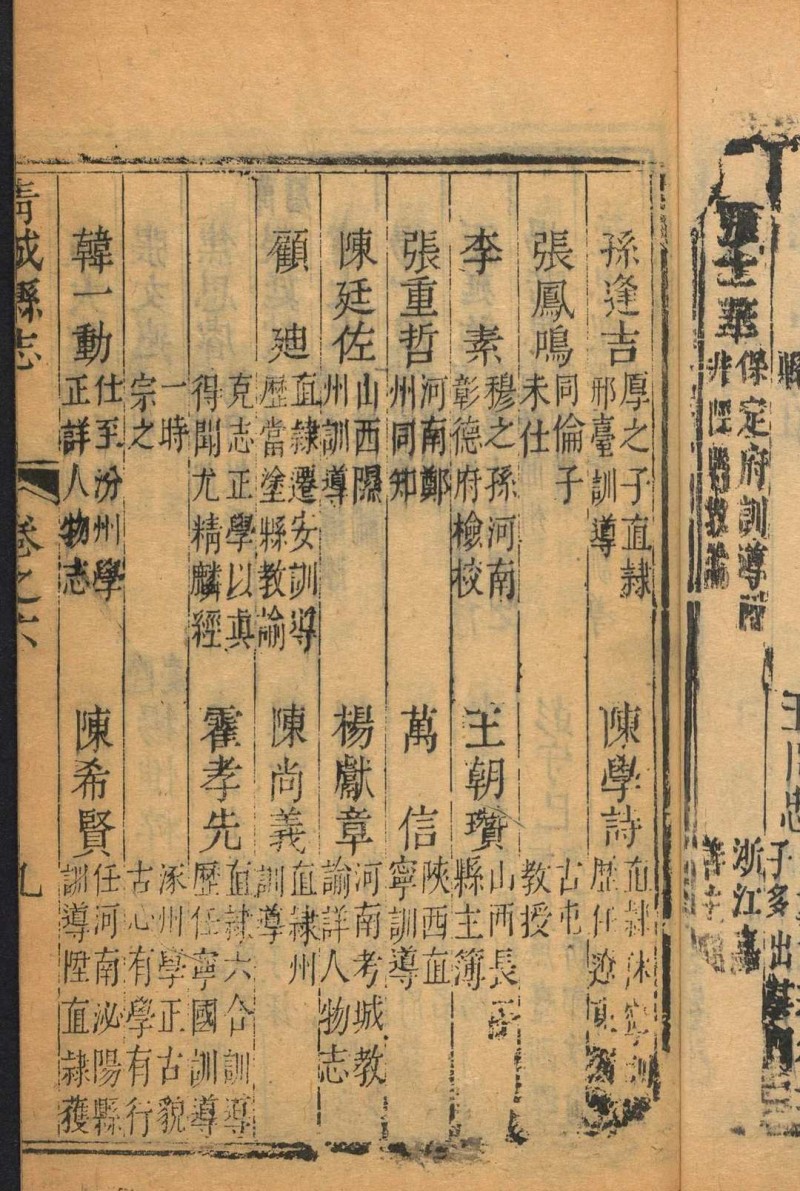 保定府訓導
浙江
子多出
孫逢吉
厚之子直隷
邢臺訓導
陳學詩
直隷休寧訓
歷任遼東
張鳳鳴
同倫子
未仕
古屯
教授
李素
穆之孫河南
彰德府檢校
王朝瓚
山西長
縣主簿
張重哲
河南鄭
州同知
萬信
陝西直
寧訓導
陳廷佐
山西隰
州訓導
楊獻章
河南考城教
諭詳人物志
顧廸
直隷遷安訓導
歷當塗縣教諭
陳尚義
直隷州
訓導
克志正學以真
得聞尤精麟經
霍孝先
直隷六合訓導
歷任寧國訓導
一時
宗之
涿州學正古貌
古心有學有行
韓一動
仕至汾州學
正詳人物志
陳希賢
任河南泌陽縣
訓導陞直隷獲
青城縣志
卷之六
九